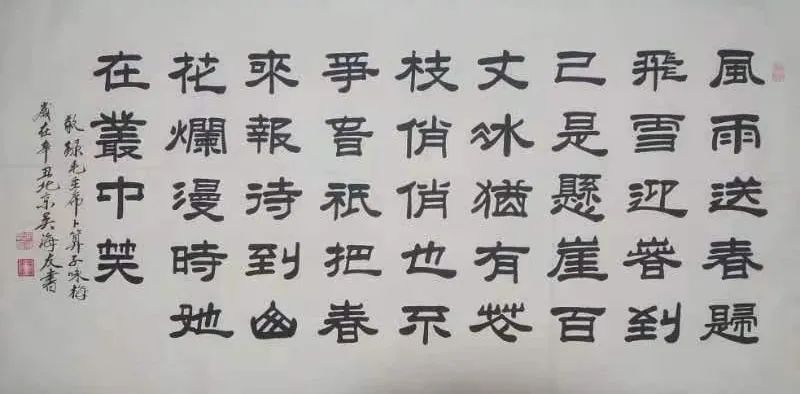 風雨送春歸
飛雪迎春到
已是懸崖百
丈冰猶有花
枝俏俏也不
爭春祇把春
來報待到山
花爛漫時她
在叢中笑
敬録毛主席卜算子咏梅
歲在辛丑北京吴海友書